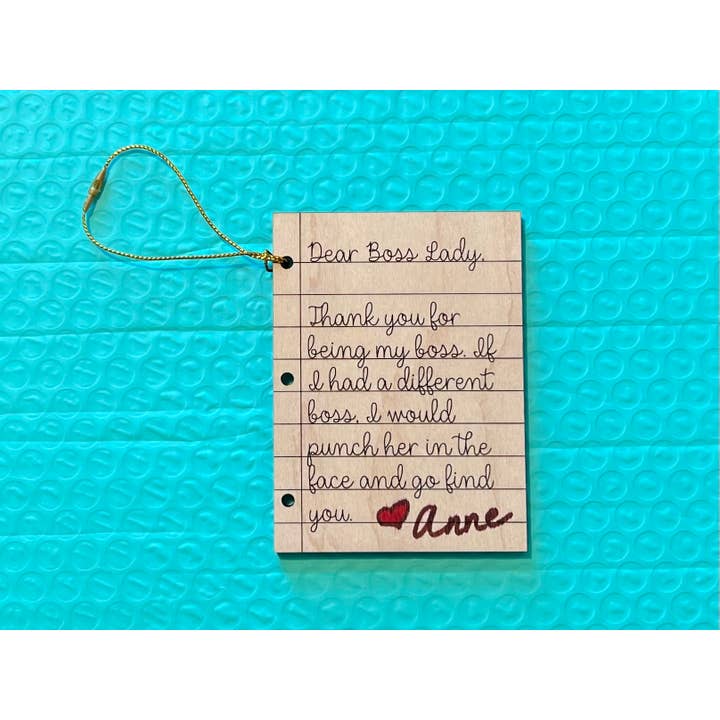 Dear Boss Lady,
Thank you for
being my boss. If
I had a different
boss, I would
punch her in the
face and go find
you. ❤ Anne